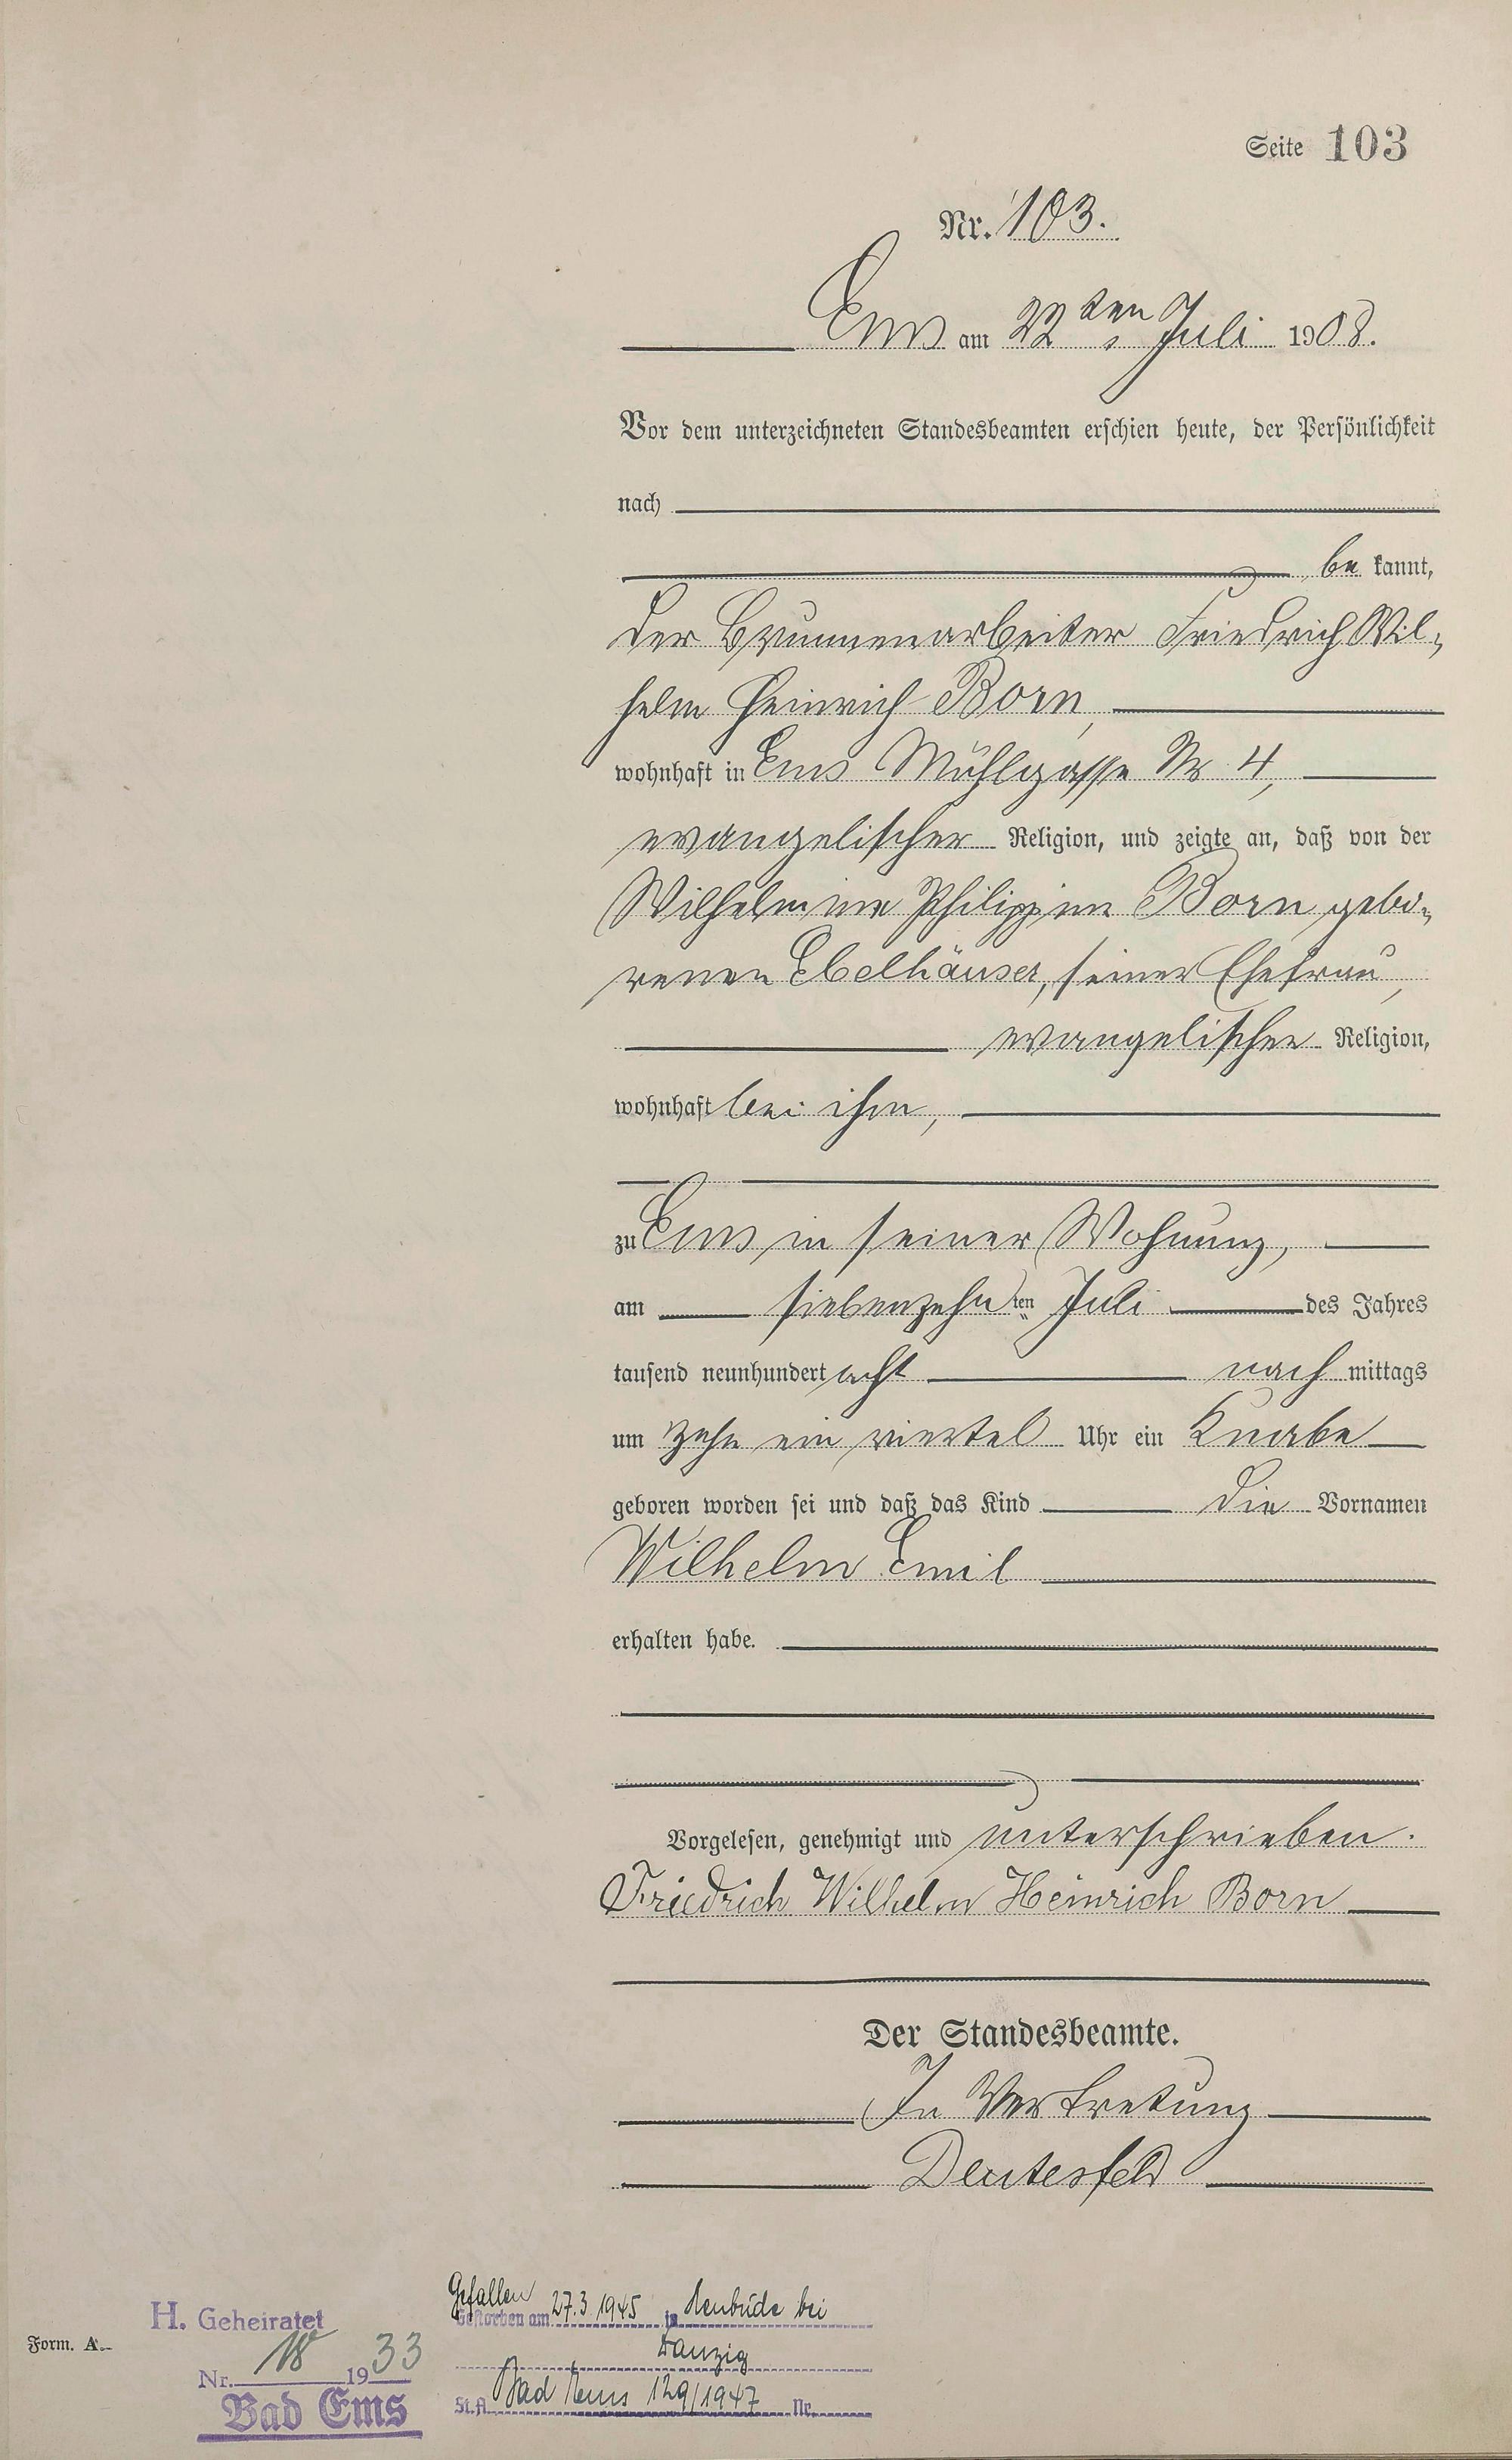 Seite 103
Nr. 103.
Ems am 22ten Juli 1908.
Vor dem unterzeichneten Standesbeamten erschien heute, der Persönlichkeit
nach
be kannt,
der Brunnenarbeiter Friedrich Wil-
helm Heinrich Born,
wohnhaft in Ems Mühlgasse Nr 4,
evangelischer Religion, und zeigte an, daß von der
Wilhelmine Philippine Born gebo-
renen Ebelhäuser, seiner Ehefrau,
evangelischer Religion,
wohnhaft bei ihm,
zu Ems in seiner Wohnung,
am siebenzehnten Juli des Jahres
tausend neunhundert acht nach mittags
um zehn ein viertel Uhr ein Knabe
geboren worden sei und daß das Kind die Vornamen
Wilhelm Emil
erhalten habe.
Vorgelesen, genehmigt und unterschrieben.
Friedrich Wilhelm Heinrich Born
Der Standesbeamte.
In Vertretung
Deutesfeld
Gefallen
Gestorben am 27.3.1945 in bei
Danzig
St.A. Bad Ems 129/1947 Nr.
H. Geheiratet
Nr. 18 1933
Bad Ems
Form. A.